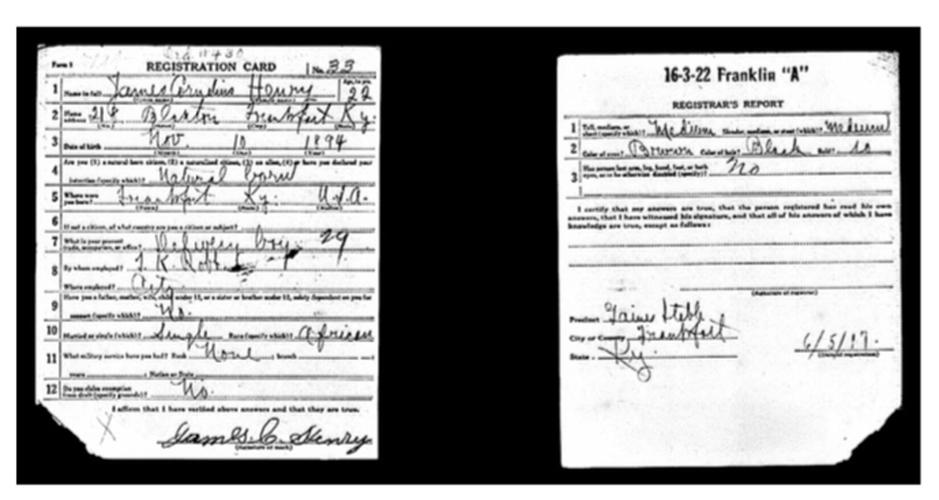 Form 1 REGISTRATION CARD No. 33
1 Name in full James Cornelius Henry Age, in yrs. 22
2 Home address 219 Blanton Frankfort Ky.
3 Date of birth Nov. 10 1894
Are you (1) a natural-born citizen, (2) a naturalized citizen, (3) an alien, (4) or have you declared your
4 intention (specify which)? Natural born
5 Where were you born? Frankfort Ky. U.S.A.
6 If not a citizen, of what country are you a citizen or subject?
7 What is your present trade, occupation, or office? Delivery boy. 29
8 By whom employed? J. K.
Where employed? City
9 Have you a father, mother, wife, child under 12, or a sister or brother under 12, solely dependent on you for
support (specify which)? No.
10 Married or single (which)? Single Race (specify which)? African
11 What military service have you had? Rank None ; branch
years ; Nation or State
12 Do you claim exemption from draft (specify grounds)? No.
I affirm that I have verified above answers and that they are true.
James. C. Henry
(Signature or mark)
16-3-22 Franklin "A"
REGISTRAR'S REPORT
1 Tall, medium, or short (specify which)? Medium Slender, medium, or stout (which)? Medium
2 Color of eyes? Brown Color of hair? Black Bald?
3 Has person lost arm, leg, hand, foot, or both eyes, or is he otherwise disabled (specify)? No
I certify that my answers are true, that the person registered has read his own
answers, that I have witnessed his signature, and that all of his answers of which I have
knowledge are true, except as follows:
(Signature of registrar)
Precinct
City or County Frankfort
State Ky. 6/5/17.
(Date of registration)